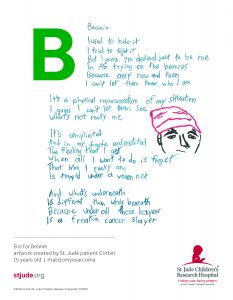 B
Beanie
I used to hate it
I tried to fight it
But I guess I'm destined just to be me
I'm 15 trying on the beanies
Because every now and then
I can't let them know who I am
It's a physical representation of my situation
I guess I can't let them see
What's not really me
It's complicated
And in my
understated
The feeling that I get
When all I want to do is forget
That who I really am
Is trapped under a video vent
And what's underneath
Is different than what's beneath
Because under all these layers
Is a freakin cancer slayer
B is for Beanie
artwork created by St. Jude patient Corbin
15 years old | rhabdomyosarcoma
stjude.org
St. Jude Children's
Research Hospital
Finding cures. Saving children.